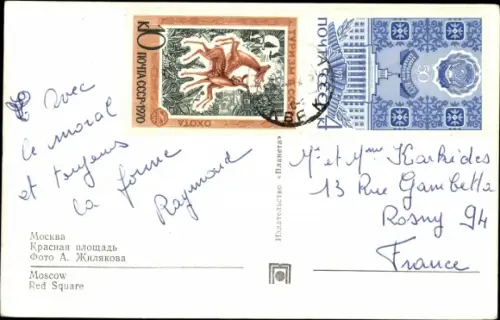 10 К
ПОЧТА СССР•1970
ОХОТА
50
Avec
le moral
et toujours
la forme
Raymond
Москва
Красная площадь
Фото А. Жилякова
Moscow
Red Square
Издательство «Планета»
Mr et Mme Karkidès
13 Rue Gambetta
Rosny 94
France